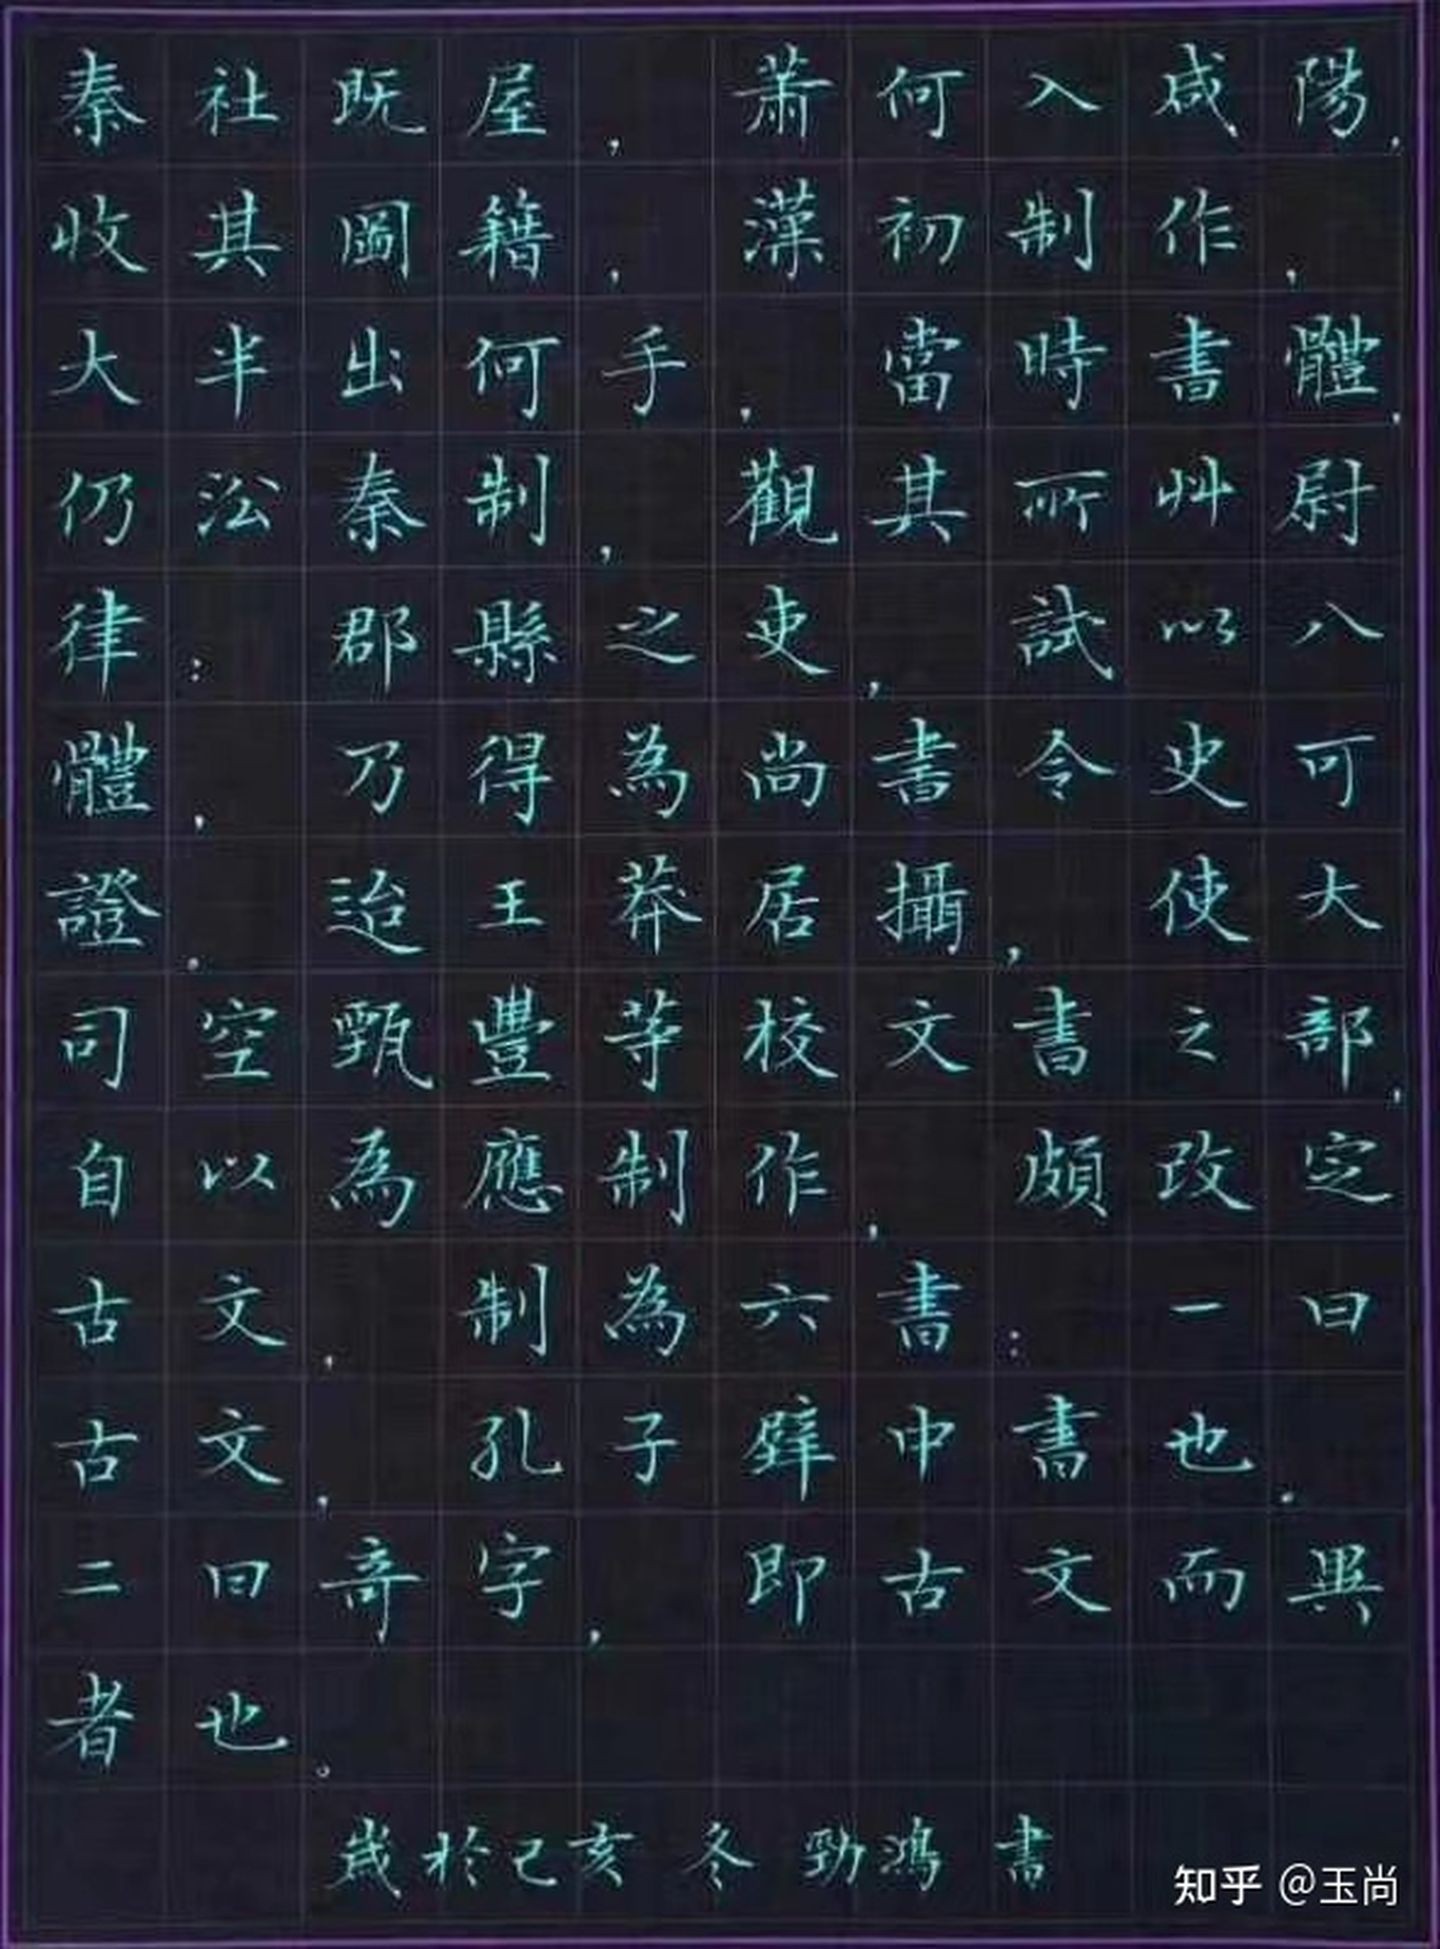 秦社既屋，蕭何入咸陽，
收其圖籍，漢初制作，
大半出何手，當時書體，
仍沿秦制，觀其所艸尉
律：郡縣之吏，試以八
體，乃得為尚書令史可
證。迨王莽居攝，使大
司空甄豐等校文書之部，
自以為應制作，頗改定
古文，制為六書：一曰
古文，孔子壁中書也。
二曰奇字，即古文而異
者也。
歲於己亥冬勁鴻書
知乎 @玉尚